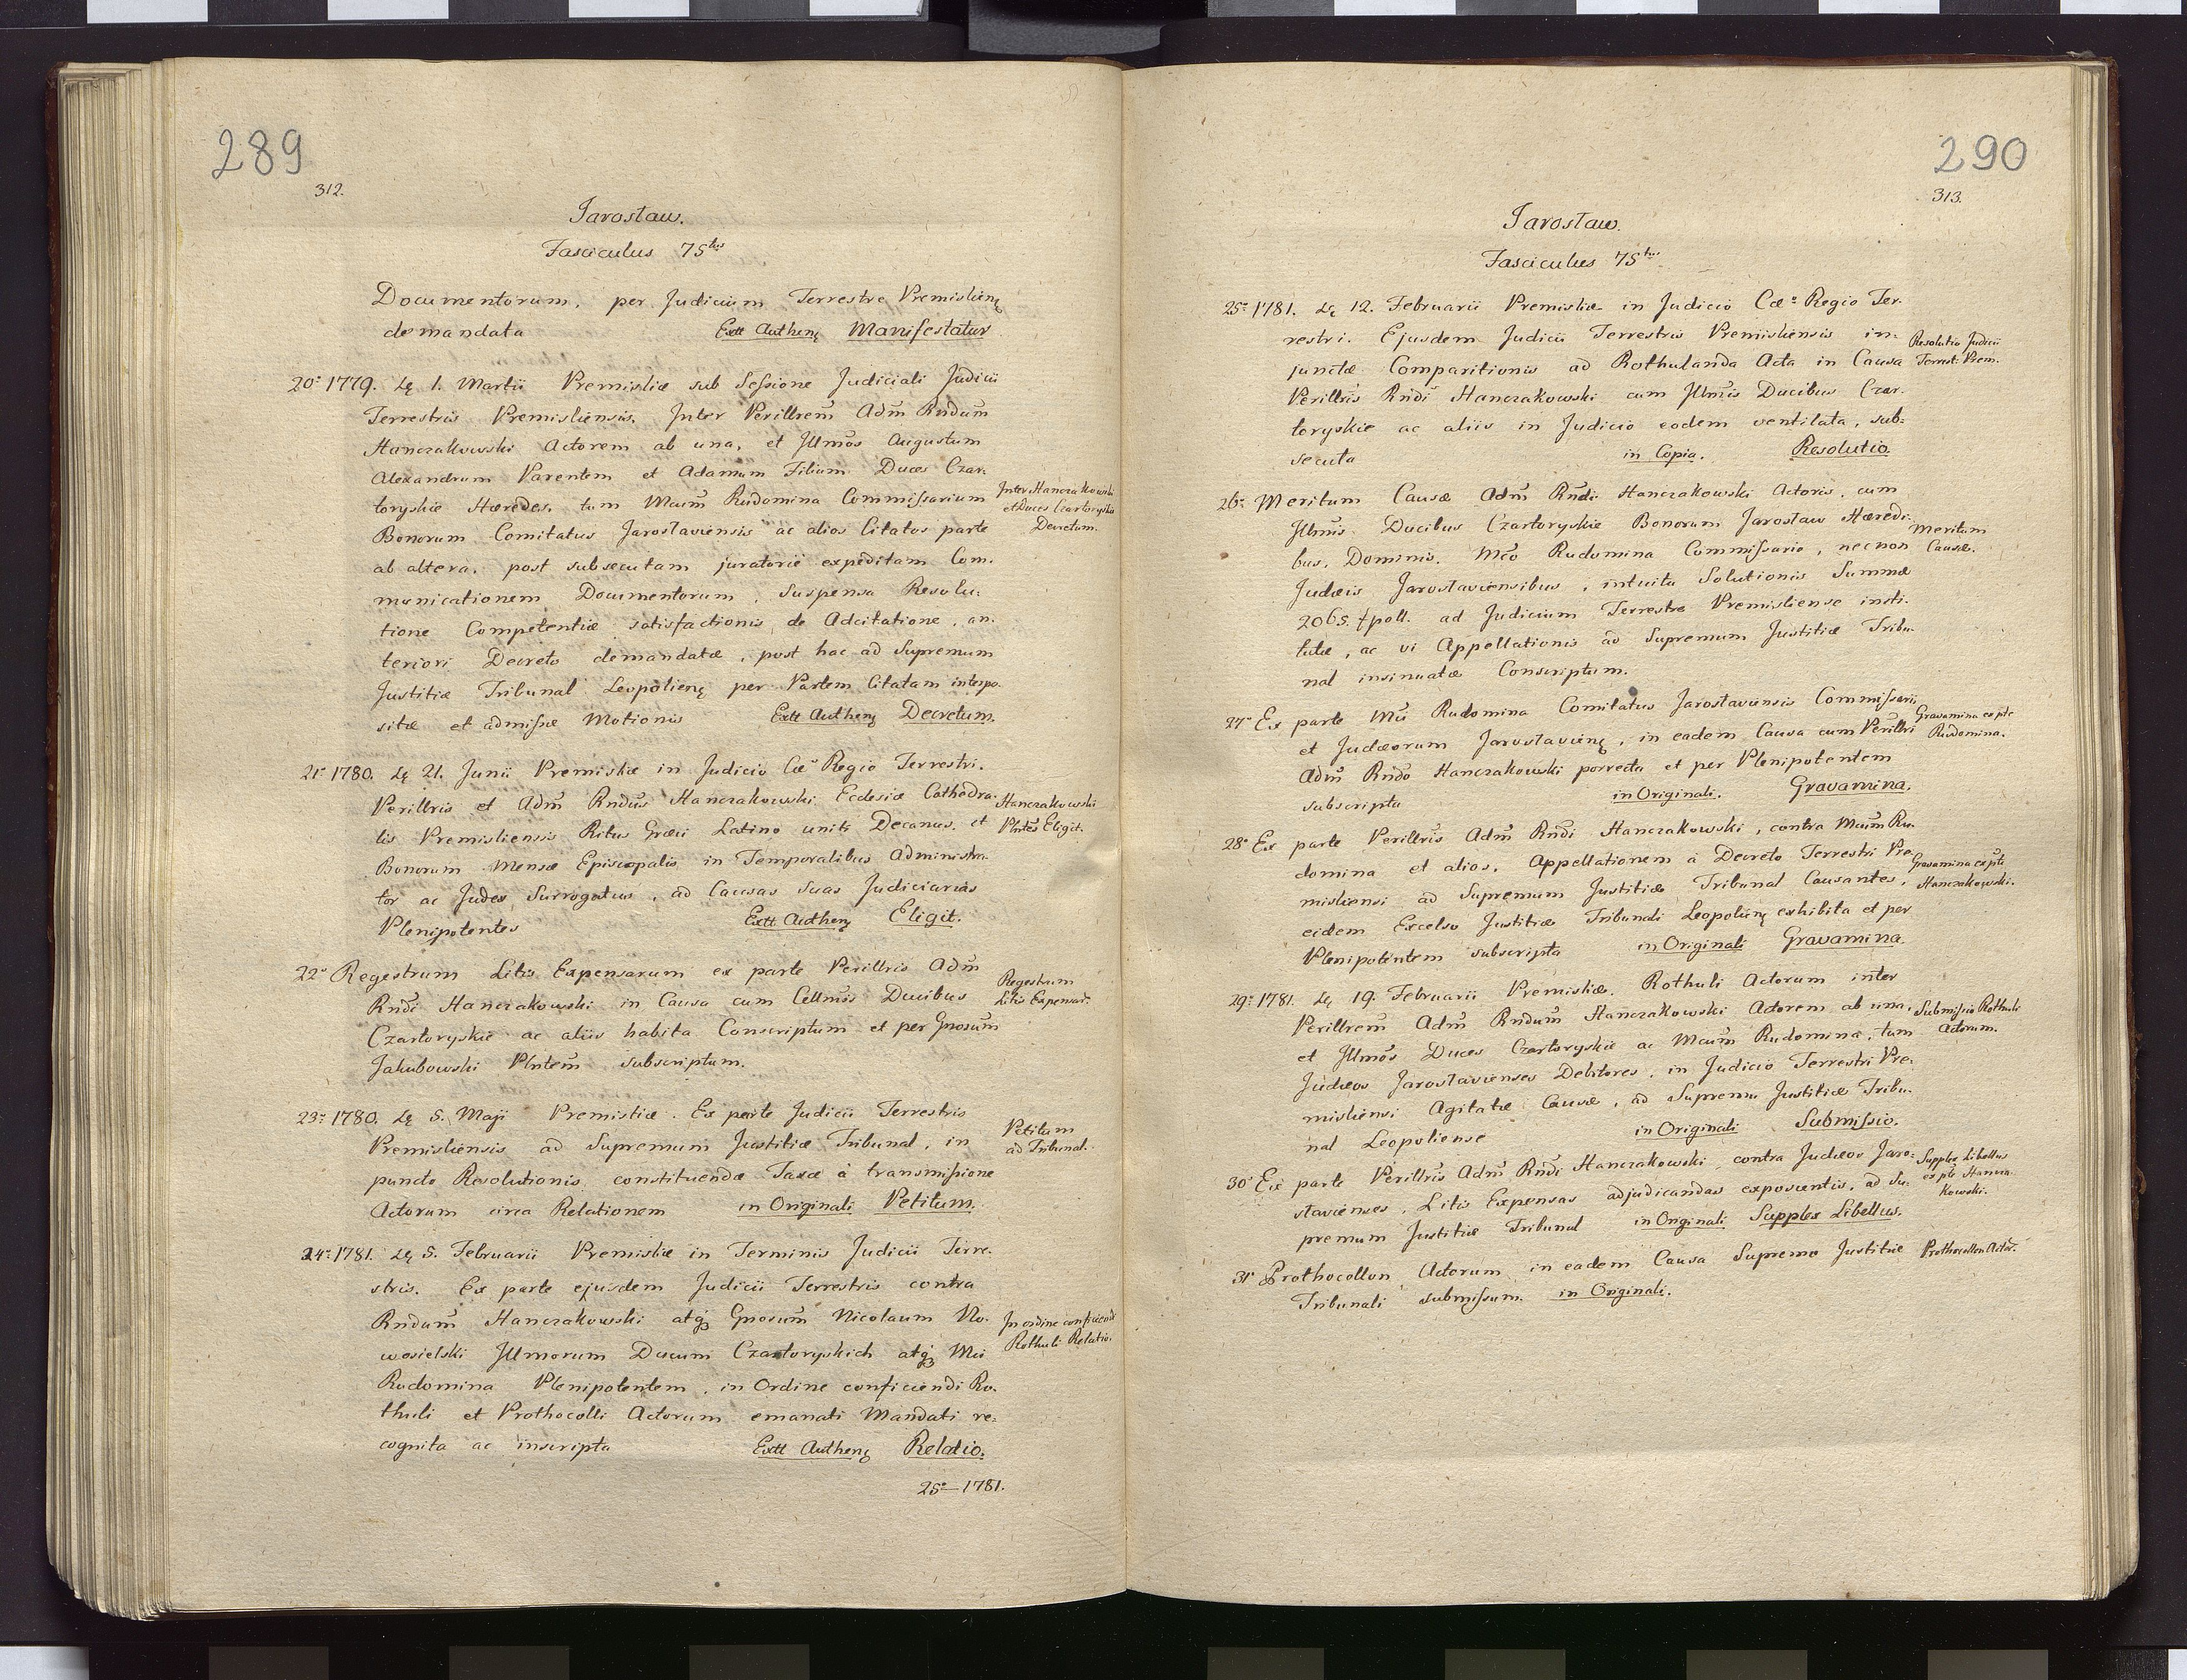 289
312.
Jarosław.
Fasciculus 75tus
Documentorum, per Judicium Terrestre Premislienę
demandata Extt Authenę Manifestatur
20º 1779. Dę 1. Martii Premisliæ sub Sessione Judiciali Judicii
Terrestris Premisliensis. Inter Perillrem̃ Adm̃ Rndum̃
Hanczakowski Actorem ab una, et Illmõs Augustum
Alexandrum Parentem et Adamum Filium Duces Czar-
toryskie Hæredes, tum Mcum̃ Rudomina Commissarium
Bonorum Comitatus Jaroslaviensis ac alios Citatos parte
ab altera, post subsecutam juratorie expeditam Com-
municationem Documentorum, Suspensa Resolu-
tione Competentiæ satisfactionis de Adcitatione, an-
teriori Decreto demandatæ, post hac ad Supremum
Justitiæ Tribunal Leopolienę per Partem Citatam interpo-
sitæ et admissæ Motionis Extt Authenę Decretum.
Inter Hanczakowski
et Duces Czartoryskie
Decretum.
21º 1780. Dę 21. Junii Premisliæ in Judicio Cæº Regio Terrestri.
Perillris et Adm̃ Rndũs Hanczakowski Ecclesiæ Cathedra-
lis Premisliensis Ritus Græci Latino uniti Decanus, et
Bonorum Mensæ Episcopalis in Temporalibus Administra-
tor ac Judex Surrogatus, ad Causas suas Judiciarias
Plenipotentes Extt Authenę Eligit.
Hanczakowski
Plntẽs Eligit.
22º Regestrum Litis Expensarum ex parte Perillris Adm̃
Rndĩ Hanczakowski in Causa cum Cellmis Ducibus
Czartoryskie ac aliis habita Conscriptum et per Gnosum̃
Jakubowski Plntem̃ subscriptum.
Regestrum
Litis Expensar:
23º 1780. Dę 5. Maji Premisliæ. Ex parte Judicii Terrestris
Premisliensis ad Supremum Justitiæ Tribunal, in
puncto Resolutionis, constituendæ Taxæ à transmissione
Actorum circa Relationem in Originali Petitum.
Petitum
ad Tribunal.
24º 1781. Dę 5. Februarii Premisliæ in Terminis Judicii Terre-
stris. Ex parte ejusdem Judicii Terrestris contra
Rndum̃ Hanczakowski atqz Gnosum̃ Nicolaum No-
wosielski Illmorum Ducum Czartoryskich atqz Mci
Rudomina Plenipotentem, in Ordine conficiendi Ro-
thuli et Prothocolli Actorum emanati Mandati re-
cognita ac inscripta Extt Authenę Relatio.
In ordine conficiend
Rothuli Relatio.
25º—1781.
290
313.
Jarosław.
Fasciculus 75tus
25º 1781. Dę 12. Februarii Premisliæ in Judicio Cæº Regio Ter-
restri. Ejusdem Judicii Terrestris Premisliensis in-
junctæ Comparitionis ad Rothulanda Acta in Causa
Perillris Rndĩ Hanczakowski cum Illmis Ducibus Czar-
toryskie ac aliis in Judicio eodem ventilata, sub-
secuta in Copia. Resolutio.
Resolutio Judicii
Terrest: Prem.
26º Meritum Causæ Adm̃ Rndĩ Hanczakowski Actoris, cum
Illmis Ducibus Czartoryskie Bonorum Jarosław Hæredi-
bus, Dominis, Mcõ Rudomina Commissario, necnon
Judæis Jaroslaviensibus, intuitu Solutionis Summæ
2065. f poll. ad Judicium Terrestre Premisliense insti-
tutæ, ac vi Appellationis ad Supremum Justitiæ Tribu-
nal insinuatæ Conscriptum.
Meritum
Causæ.
27º Ex parte Mci Rudomina Comitatus Jaroslaviensis Commissarii
et Judæorum Jaroslavienę, in eadem Causa cum Perillri
Adm̃ Rndõ Hanczakowski porrecta et per Plenipotentem
subscripta in Originali. Gravamina.
Gravamina ex pte
Rudomina.
28º Ex parte Perillris Adm̃ Rndĩ Hanczakowski, contra Mcum̃ Ru-
domina et alios, Appellationem à Decreto Terrestri Pre-
misliensi ad Supremum Justitiæ Tribunal Causantes,
eidem Excelso Justitiæ Tribunali Leopolienę exhibita et per
Plenipotentem subscripta in Originali Gravamina.
Gravamina ex pte
Hanczakowski.
29º 1781. Dę 19. Februarii Premisliæ. Rothuli Actorum inter
Perillrem̃ Adm̃ Rndum̃ Hanczakowski Actorem ab una,
et Illmõs Duces Czartoryskie ac Mcum̃ Rudomina, tum
Judæos Jaroslavienses Debitores, in Judicio Terrestri Pre-
misliensi Agitatæ Causæ, ad Supremu Justitiæ Tribu-
nal Leopoliense in Originali Submissio.
Submissio Rothuli
Actorum.
30º Ex parte Perillris Adm̃ Rndĩ Hanczakowski, contra Judæos Jaro-
slavienses, Litis Expensas adjudicandas exposcentis, ad Su-
premum Justitiæ Tribunal in Originali Supplex Libellus.
Supplex Libellus
ex pte Hancza-
kowski.
31º Prothocollon Actorum in eadem Causa Supremo Justitiæ
Tribunali submissum. in Originali.
Prothocollon Actor: